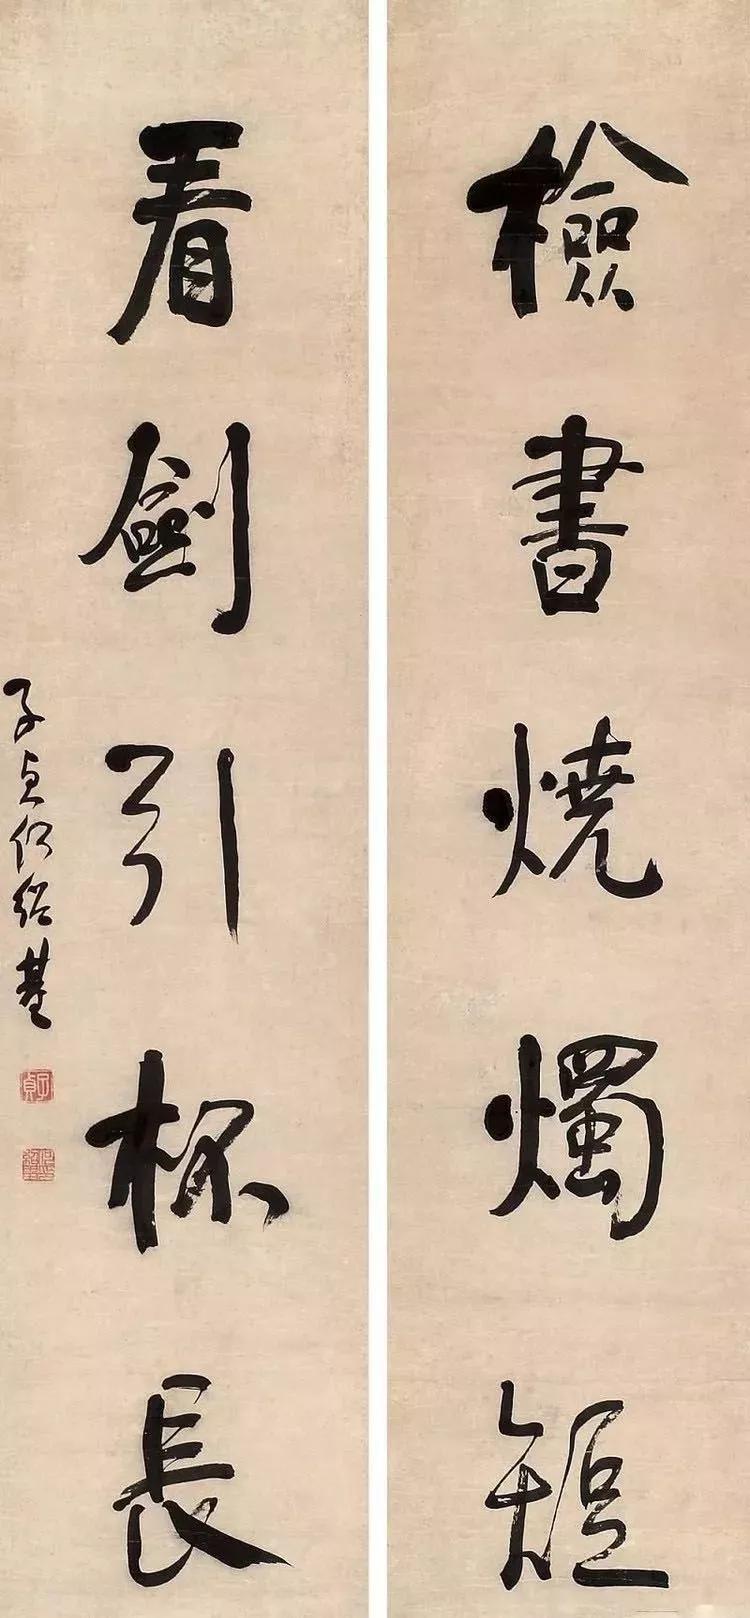 檢書燒燭短
看劍引杯長
子貞何紹基
子貞